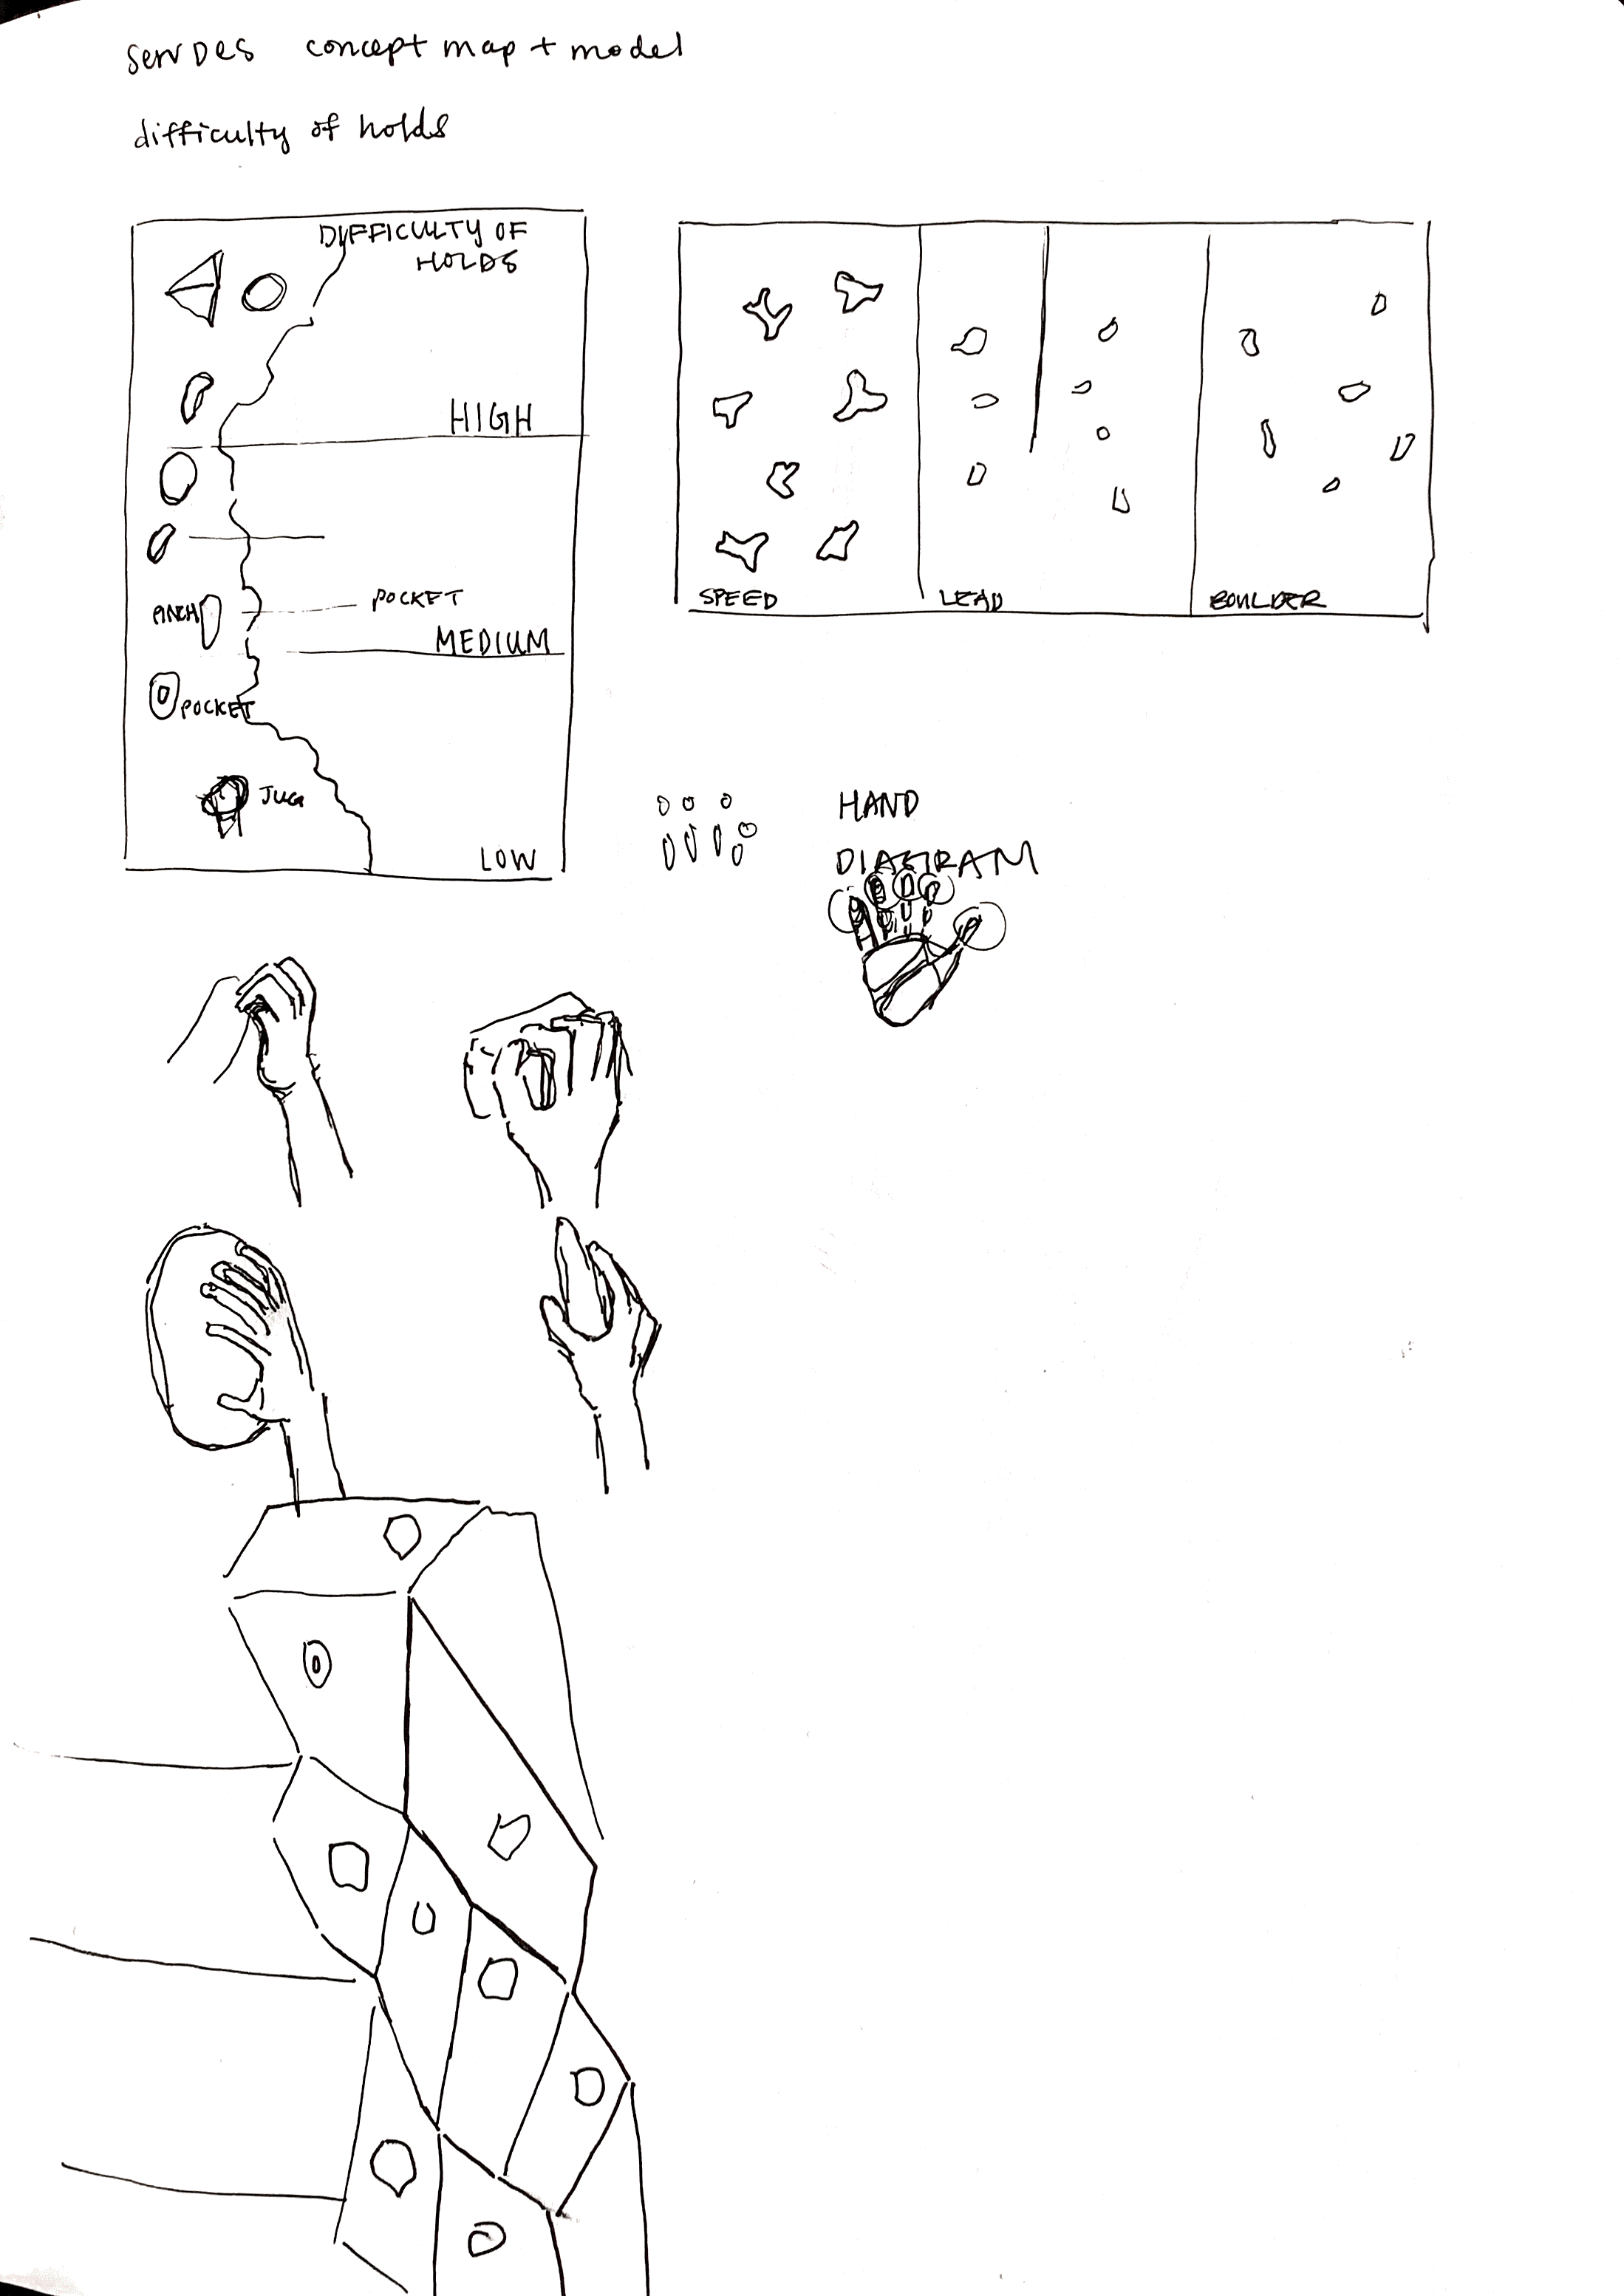 servDes concept map + model
difficulty of holds
DIFFICULTY OF
HOLDS
HIGH
PINCH
POCKET
MEDIUM
POCKET
JUG
LOW
SPEED
LEAD
BOULDER
HAND
DIAGRAM